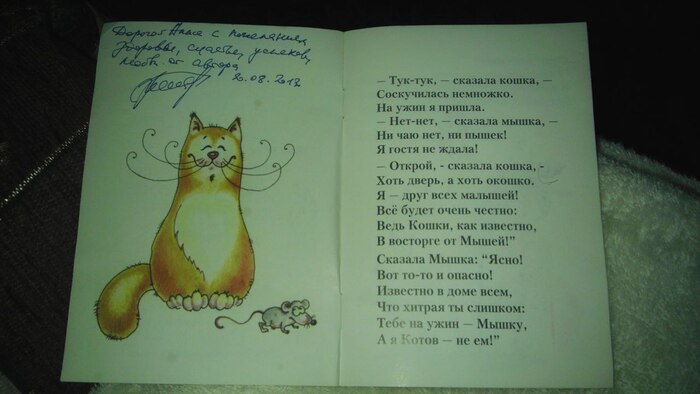 Дорогой Анне с пожеланием
здоровья, счастья, успехов,
любви от автора
20.08.2013
– Тук-тук, – сказала кошка, –
Соскучилась немножко.
На ужин я пришла.
– Нет-нет, – сказала мышка, –
Ни чаю нет, ни пышек!
Я гостя не ждала!
– Открой, - сказала кошка, -
Хоть дверь, а хоть окошко.
Я – друг всех малышей!
Всё будет очень честно:
Ведь Кошки, как известно,
В восторге от Мышей!”
Сказала Мышка: “Ясно!
Вот то-то и опасно!
Известно в доме всем,
Что хитрая ты слишком:
Тебе на ужин – Мышку,
А я Котов – не ем!”